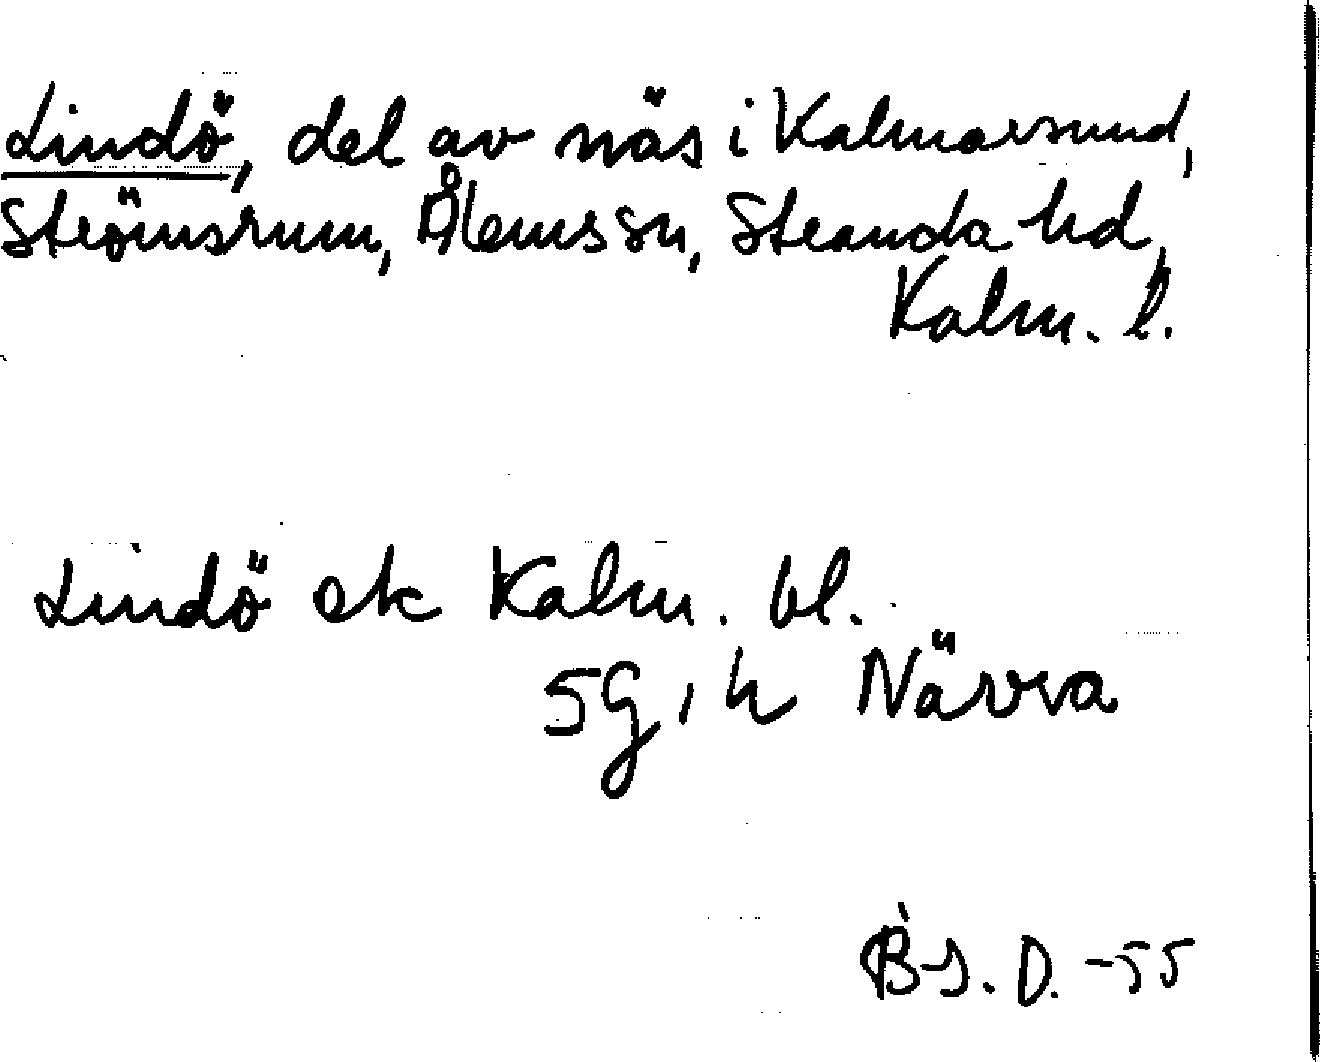 Lindö, del av näs i Kalmarsund,
Strömsrum, Ålems sn, Stranda hd,
Kalm. l.
Lindö ek Kalm. bl.
5g, h Närra
B-J. D. -55